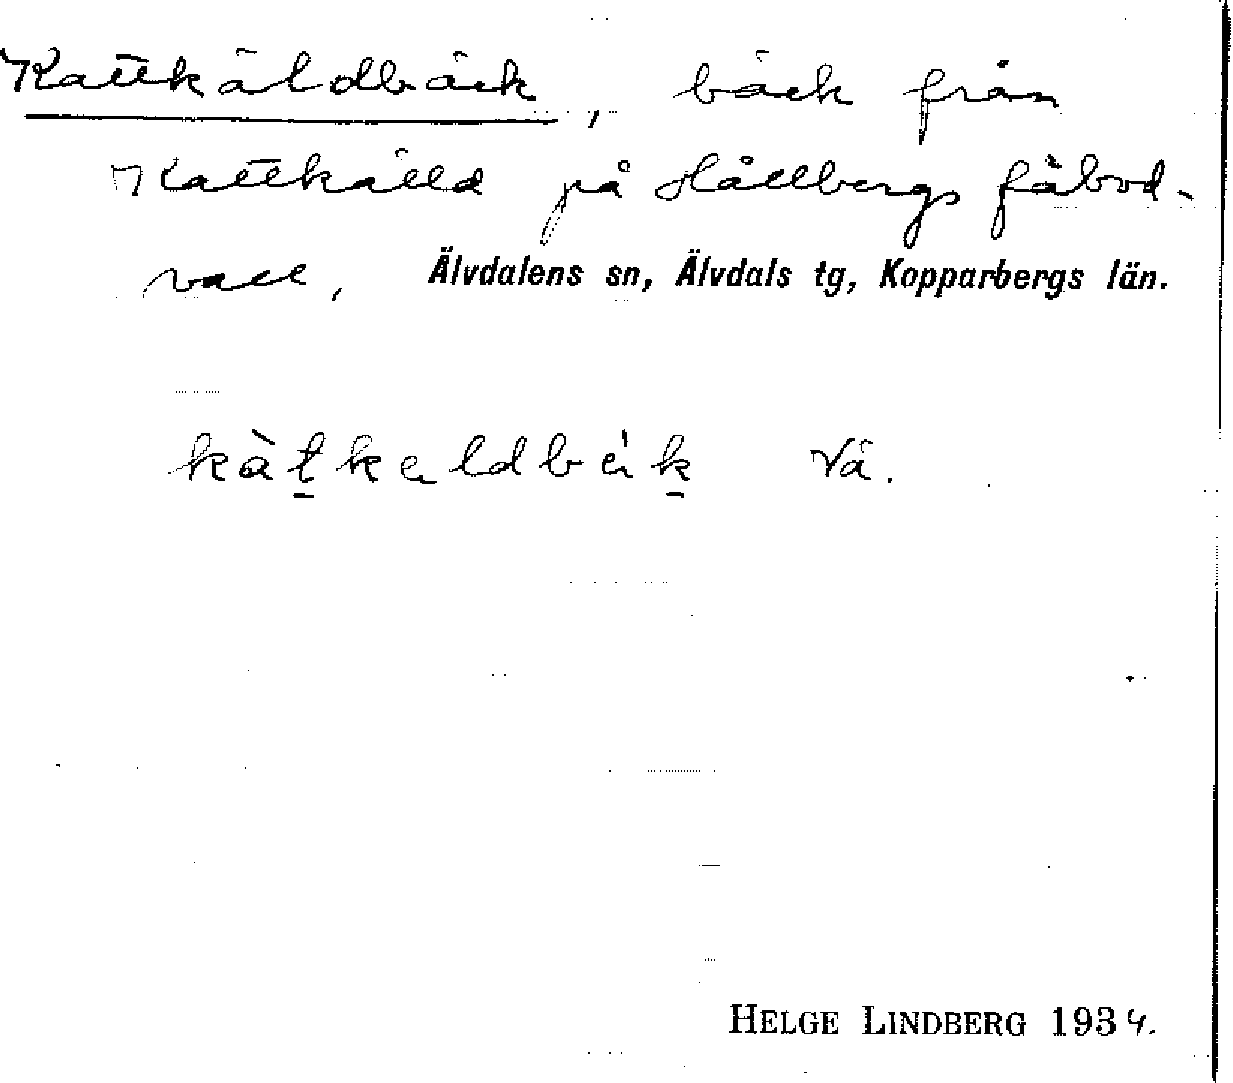 Kattkäldbäck, bäck från
Kattkälld på Hållbergs fäbod-
vall, Älvdalens sn, Älvdals tg, Kopparbergs län.
Vä.
HELGE LINDBERG 1934.